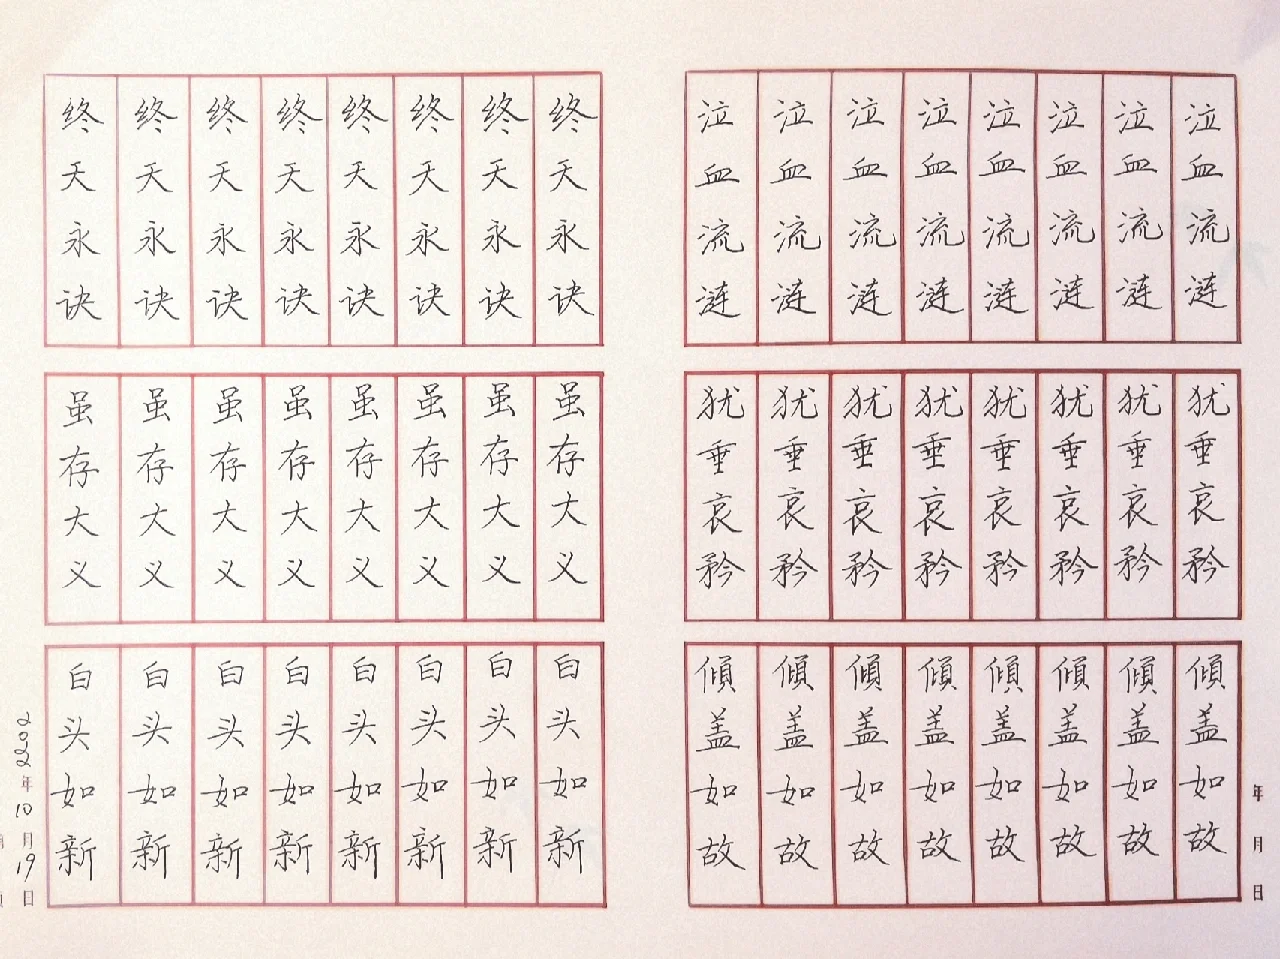 年月日
泣血流涟
泣血流涟
泣血流涟
泣血流涟
泣血流涟
泣血流涟
泣血流涟
泣血流涟
犹垂哀矜
犹垂哀矜
犹垂哀矜
犹垂哀矜
犹垂哀矜
犹垂哀矜
犹垂哀矜
犹垂哀矜
傾盖如故
傾盖如故
傾盖如故
傾盖如故
傾盖如故
傾盖如故
傾盖如故
傾盖如故
终天永诀
终天永诀
终天永诀
终天永诀
终天永诀
终天永诀
终天永诀
终天永诀
虽存大义
虽存大义
虽存大义
虽存大义
虽存大义
虽存大义
虽存大义
虽存大义
白头如新
白头如新
白头如新
白头如新
白头如新
白头如新
白头如新
白头如新
2022年10月19日